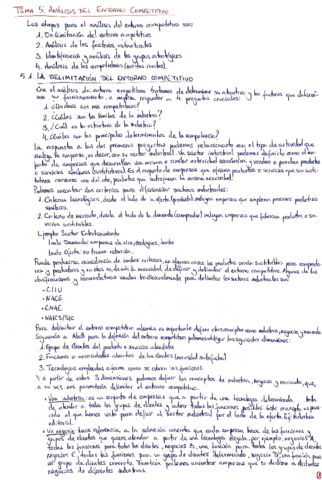 TEMA 5. ANÁLISIS DEL ENTORNO COMPETITIVO
Las etapas para el análisis del entorno competitivo son:
1. Delimitación del entorno competitivo.
2. Análisis de los factores estructurales
3. Identificación y análisis de los grupos estratégicos
4. Análisis de los competidores (rivales).
5.1. LA DELIMITACIÓN DEL ENTORNO COMPETITIVO
Con el análisis del entorno competitivo tratamos de determinar su atractivo y los factores que determi-
nan su funcionamiento, e intentar responder a 4 preguntas cruciales:
1. ¿Quiénes son mis competidores?
2. ¿Cuáles son los límites de la industria?
3. ¿Cuál es la estructura de la industria?
4. ¿Cuáles son los principales determinantes de la competencia?
La respuesta a las dos primeras preguntas podemos relacionarla con el tipo de actividad que
realiza la empresa, es decir, con su sector industrial. Un sector industrial podemos definirlo como el con-
junto de empresas que desarrollan una misma o similar actividad económica y venden o prestan productos
o servicios similares (sustitutivos). Es el conjunto de empresas que ofrecen productos o servicios que son susti-
tutivos cercanos uno del otro, productos que satisfacen la misma necesidad.
Podemos encontrar dos criterios para diferenciar sectores industriales:
1. Criterio tecnológico, desde el lado de la oferta (producto) incluyen empresas que emplean procesos productivos
similares.
2. Criterio de mercado, desde el lado de la demanda (comprador) incluyen empresas que fabrican productos o ser-
vicios sustitutivos.
Ejemplo: Sector Entretenimiento
lado Demanda: empresas de cine, videojuegos, teatro
lado Oferta: no tienen relación.
Puede producirse coincidencia de ambos criterios, en algunos casos los productos serán sustituibles para comprado-
res y productores y en otros no, de ahí la necesidad de definir y delimitar el entorno competitivo. Algunas de las
clasificaciones y nomenclaturas usadas tradicionalmente para delimitar los sectores industriales son:
• C.I.I.U
• NACE
• CNAE
• NAICS/SIC
Para delimitar el entorno competitivo además es importante definir otros conceptos como industria, negocio y mercado
Siguiendo a Abell para la definición del entorno competitivo podemos utilizar las siguientes dimensiones:
1. Grupo de clientes del producto o servicio atendidos
2. Funciones o necesidades abiertas de los clientes (necesidad satisfecha)
3. Tecnologías empleadas o forma como se cubren las funciones.
Y a partir de estas 3 dimensiones podemos definir los conceptos de industria, negocio y mercado, que,
a su vez nos permitirán delimitar el entorno competitivo.
• Una industria: es un conjunto de empresas que a partir de una tecnología determinada trata
de atender a todos los grupos de clientes y cubrir todas las funciones posibles. Este concepto
editorial.
• Un negocio: hace referencia a la selección concreta que cada empresa hace de las funciones y
grupos de clientes que quiere atender a partir de una tecnología elegida, por ejemplo, negocios A
todas las funciones para todos los clientes, negocios B, una función para todos los grupos de clientes
negocios C, todas las funciones para un grupo de clientes determinado, negocio D, una función para
un grupo de clientes concreto. También podemos encontrar empresas que se dedican a distintos
negocios de diferentes industrias.